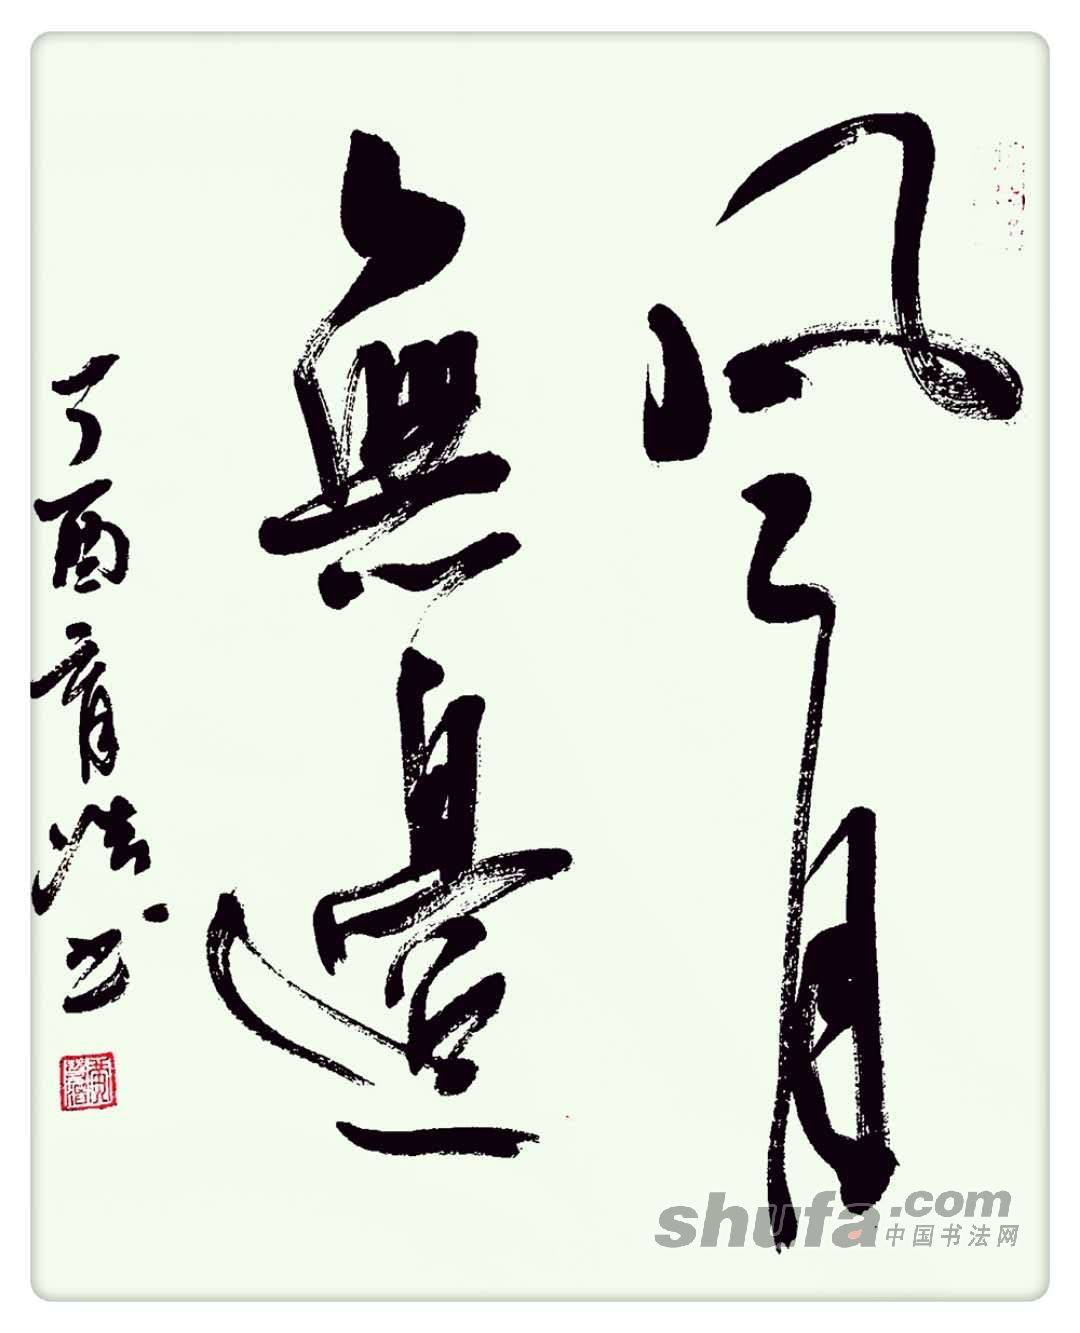 风月
無邊
丁酉育浩书
shufa.com
中国书法网